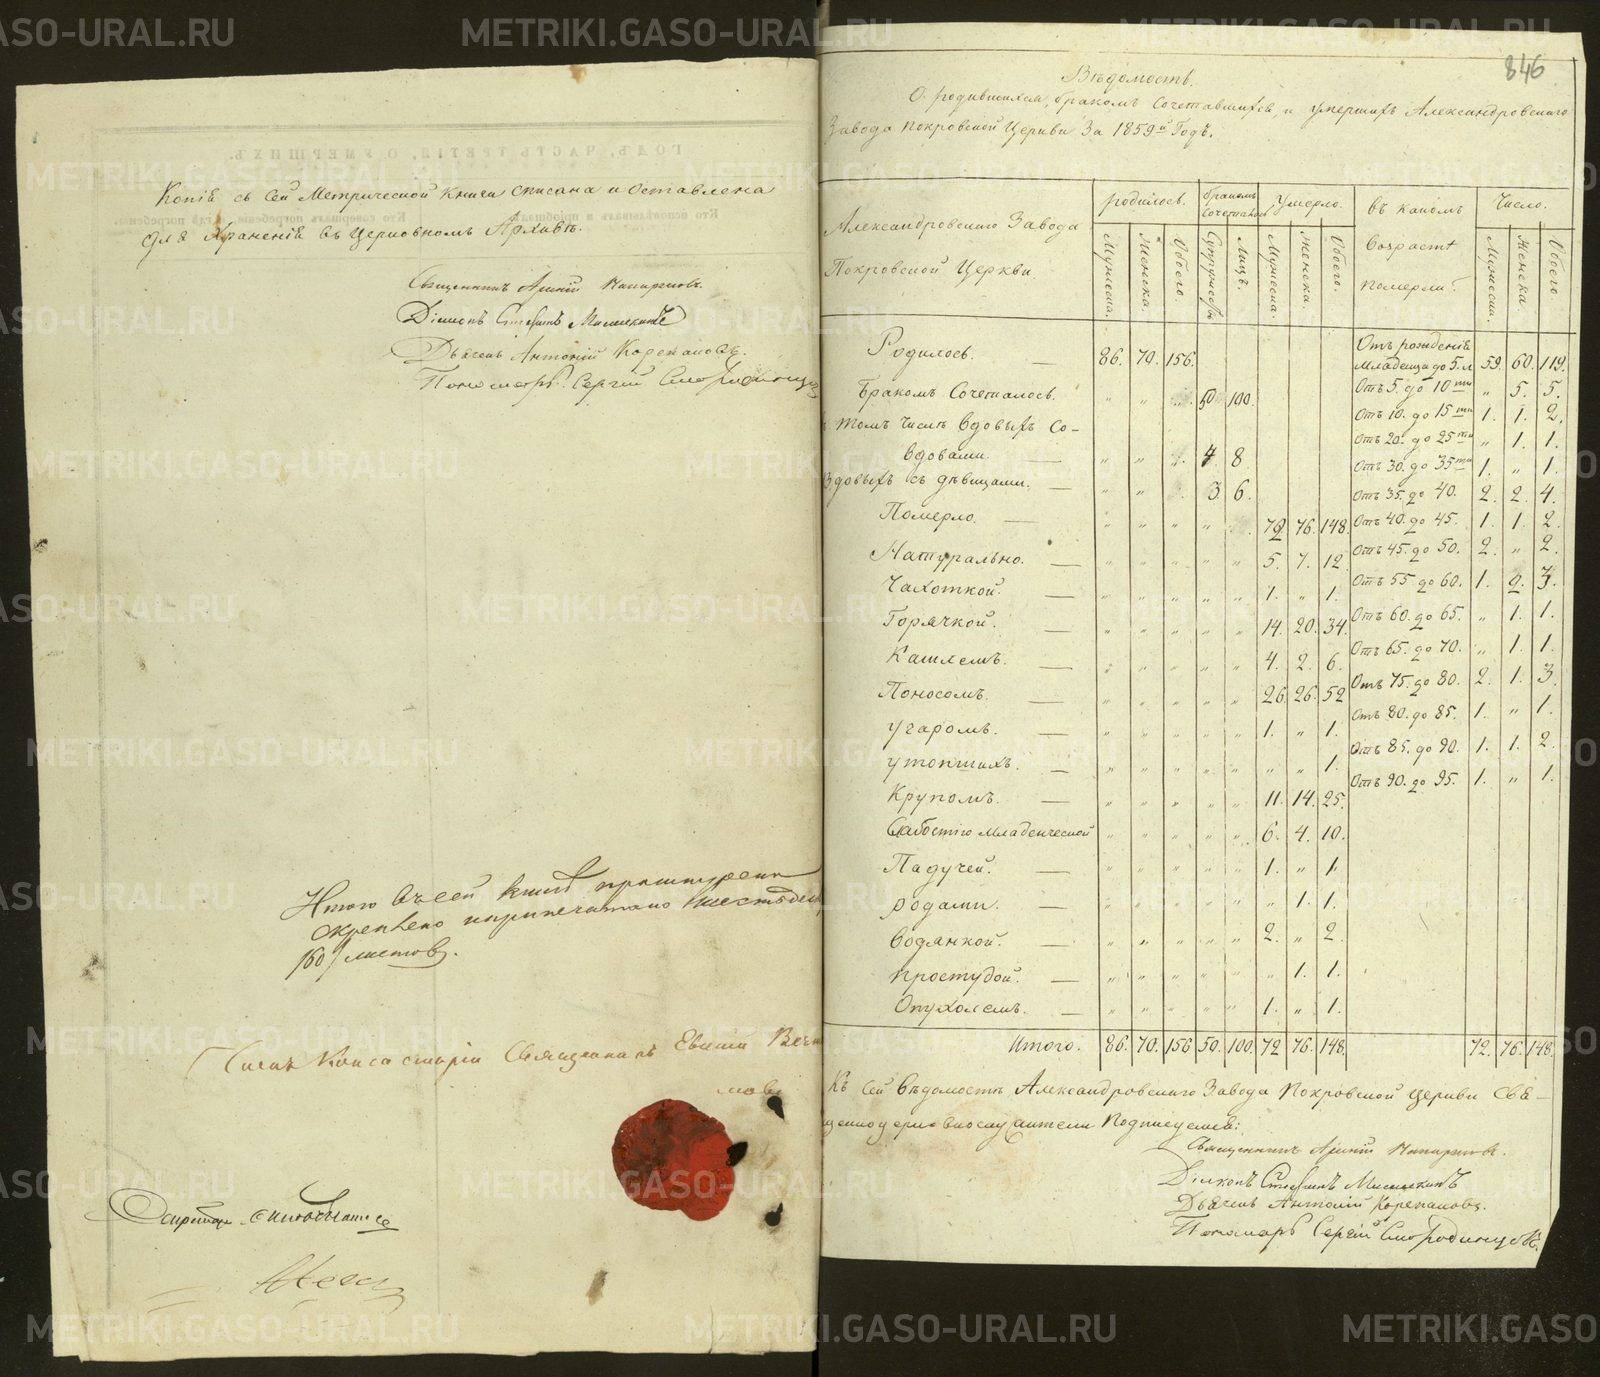 Копія съ сей Метрической Книги списана и оставлена
для храненія въ Церковномъ Архивѣ.
Священникъ
Діаконъ Стефанъ
Дьячекъ Антоній Корепановъ.
Пономарь Сергій Смородинцо
Итого въ сей книгѣ прошнуровано
скрѣплено и припечатано шестьдес
/60/ листовъ.
Членъ Консисторіи Священникъ Евгеній
Секретарь
846
Вѣдомость
О родившихся, бракомъ сочетавшихся, и умершихъ Александровскаго
Завода Покровской Церкви За 1859й Годъ.
Александровскаго Завода
Покровской Церкви
родилось. бракомъ сочеталось Умерло. въ какомъ возрастѣ померли? Число.
Мужеска. Женска. Обоего. Супружествъ Лицъ. Мужеска. Женска. Обоего. Мужеска. Женска. Обоего
Родилось. — 86. 70. 156.
Отъ рожденія Младенца до 5. л 59. 60. 119.
Бракомъ Сочеталось. " " " 50 100.
Отъ 5. до 10ти " 5. 5.
томъ числѣ вдовыхъ со-
Отъ 10. до 15ти 1. 1. 2.
вдовами. — " " " 4 8
Отъ 20. до 25ти " 1. 1.
Вдовыхъ съ дѣвицами. — " " 3 6.
Отъ 30. до 35ти 1. " 1.
Отъ 35. до 40. 2. 2. 4.
Померло. — " " " " 72 76. 148
Отъ 40. до 45. 1. 1. 2.
Натурально. — " " " " " 5. 7. 12.
Отъ 45. до 50. 2. " 2.
Чахоткой. — " " " " " 1. " 1.
Отъ 55 до 60. 1. 2. 3.
Горячкой. — " " " " " 14. 20. 34.
Отъ 60. до 65. " 1. 1.
Кашлемъ. — " " " " " 4. 2. 6.
Отъ 65. до 70. " 1. 1.
Поносомъ. — " " " " " 26. 26. 52
Отъ 75. до 80. 2. 1. 3.
Угаромъ. — " " " " " 1. " 1.
Отъ 80. до 85. 1. " 1.
утопшихъ. — " " " " " " " 1.
Отъ 85. до 90. 1. 1. 2.
Крупомъ. — " " " " " 11. 14. 25.
Отъ 90. до 95. 1. " 1.
Слабостію младенческой " " " " " 6. 4. 10.
Падучей. — " " " " " 1. " 1.
родами. — " " " " " " 1. 1.
Водянкой. — " " " " " 2. " 2.
простудой. — " " " " " " 1. 1.
Опухолемъ. — " " " " " 1. " 1.
Итого. 86. 70. 156 50. 100 72 76. 148. 72. 76. 148.
Къ сей Вѣдомости Александровскаго Завода Покровской Церкви Свя-
щенноцерковнослужители Подписуемся:
Священникъ
Діаконъ Стефанъ
Дьячекъ Антоній Корепановъ.
Пономарь Сергій Смородинцовъ.
METRIKI.GASO-URAL.RU